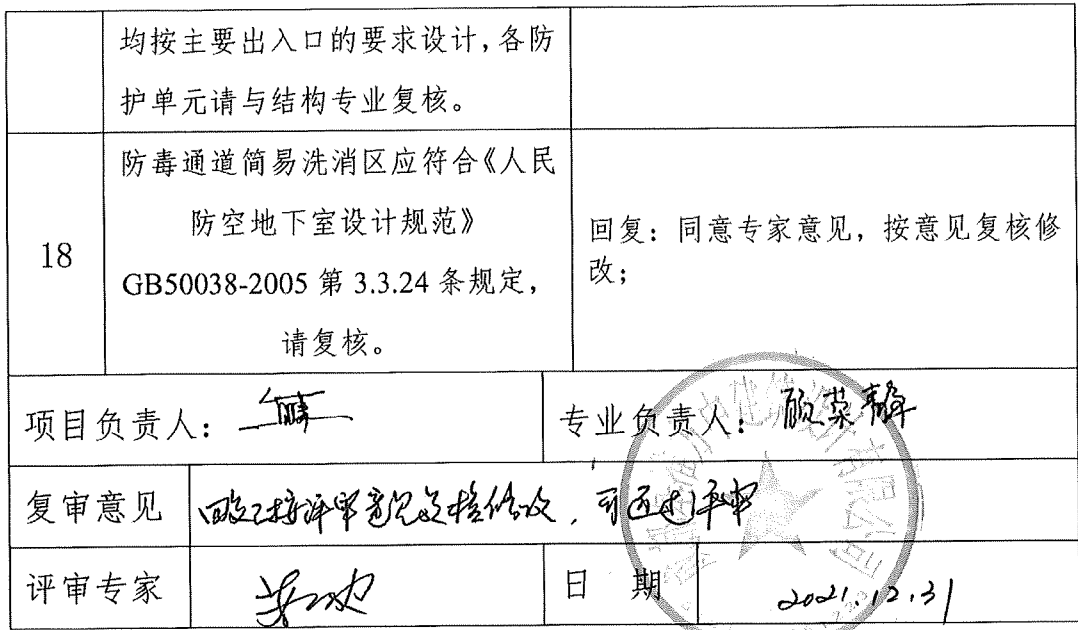 均按主要出入口的要求设计，各防
护单元请与结构专业复核。
18
防毒通道简易洗消区应符合《人民
防空地下室设计规范》
GB50038-2005 第 3.3.24 条规定，
请复核。
回复：同意专家意见，按意见复核修
改；
项目负责人：
专业负责人：顾荣静
复审意见
已按评审意见复核修改，可通过评审
评审专家
日 期
2021.12.31